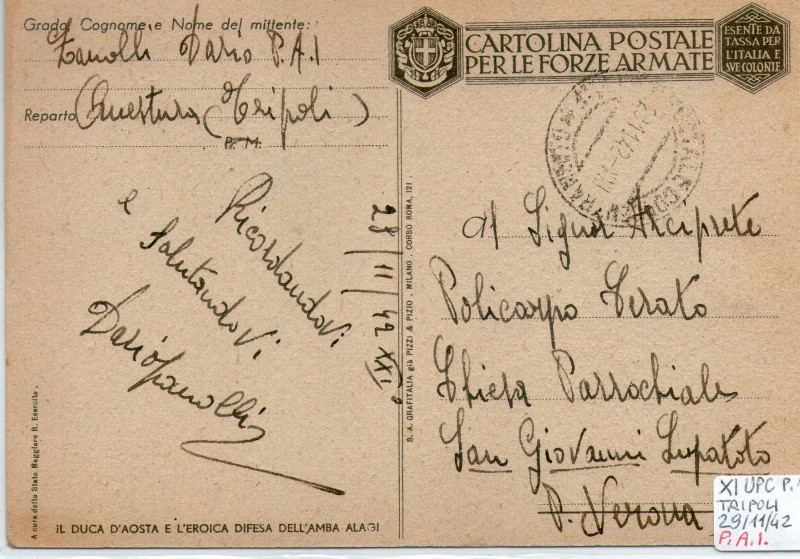 Grado, Cognome e Nome del mittente:
Zanolli Dario P.A.I
Reparto Questura (Tripoli)
P. M.
Ricordandovi
e Salutandovi
Dario Zanolli
28/11/42 XXI°
A cura dello Stato Maggiore R. Esercito.
IL DUCA D'AOSTA E L'EROICA DIFESA DELL'AMBA ALAGI
S. A. GRAFITALIA già PIZZI & PIZIO . MILANO . CORSO ROMA, 121 .
CARTOLINA POSTALE
PER LE FORZE ARMATE
ESENTE DA
TASSA PER
L'ITALIA E
SVE COLONIE
29.11.42
Al Signor Arciprete
Policarpo Cerato
Chiesa Parrochiale
San Giovanni Lupatoto
P. Verona
XI UPC P.
TRIPOLI
29/11/42
P.A.I.